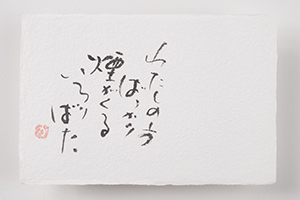 わたしの方
ばっかり
煙がくる
いろり
ばた